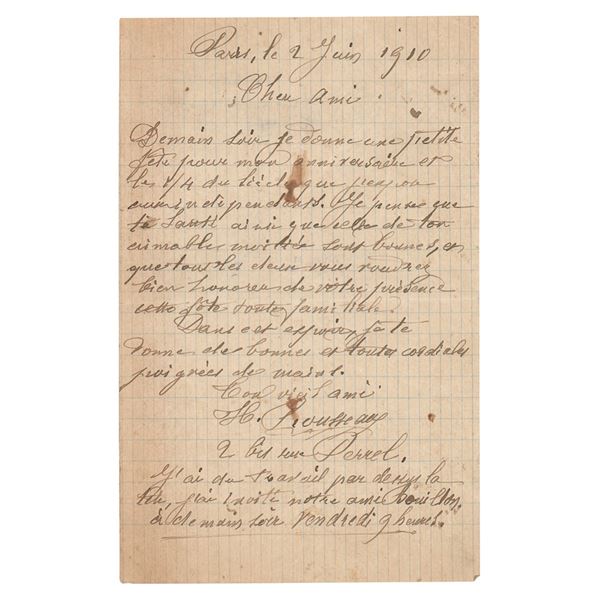 Paris, le 2 Juin 1910
Cher ami
Demain soir je donne une petite
fête pour mon anniversaire et
les 1/4 du siècle que j'expo
aux indépendants. Je pense que
ta santé ainsi que celle de ton
aimable moitiée sont bonnes, et
que tous les deux vous voudrez
bien honorer de votre présence
cette fête toute familiale.
Dans cet espoir, je te
donne de bonnes et toutes cordiales
poignées de mains.
Ton vieil ami
H. Rousseau
2 bis rue Perrel.
J'ai du travail par dessus la
tête, j'ai invité notre ami
à demain soir vendredi 9 heures.